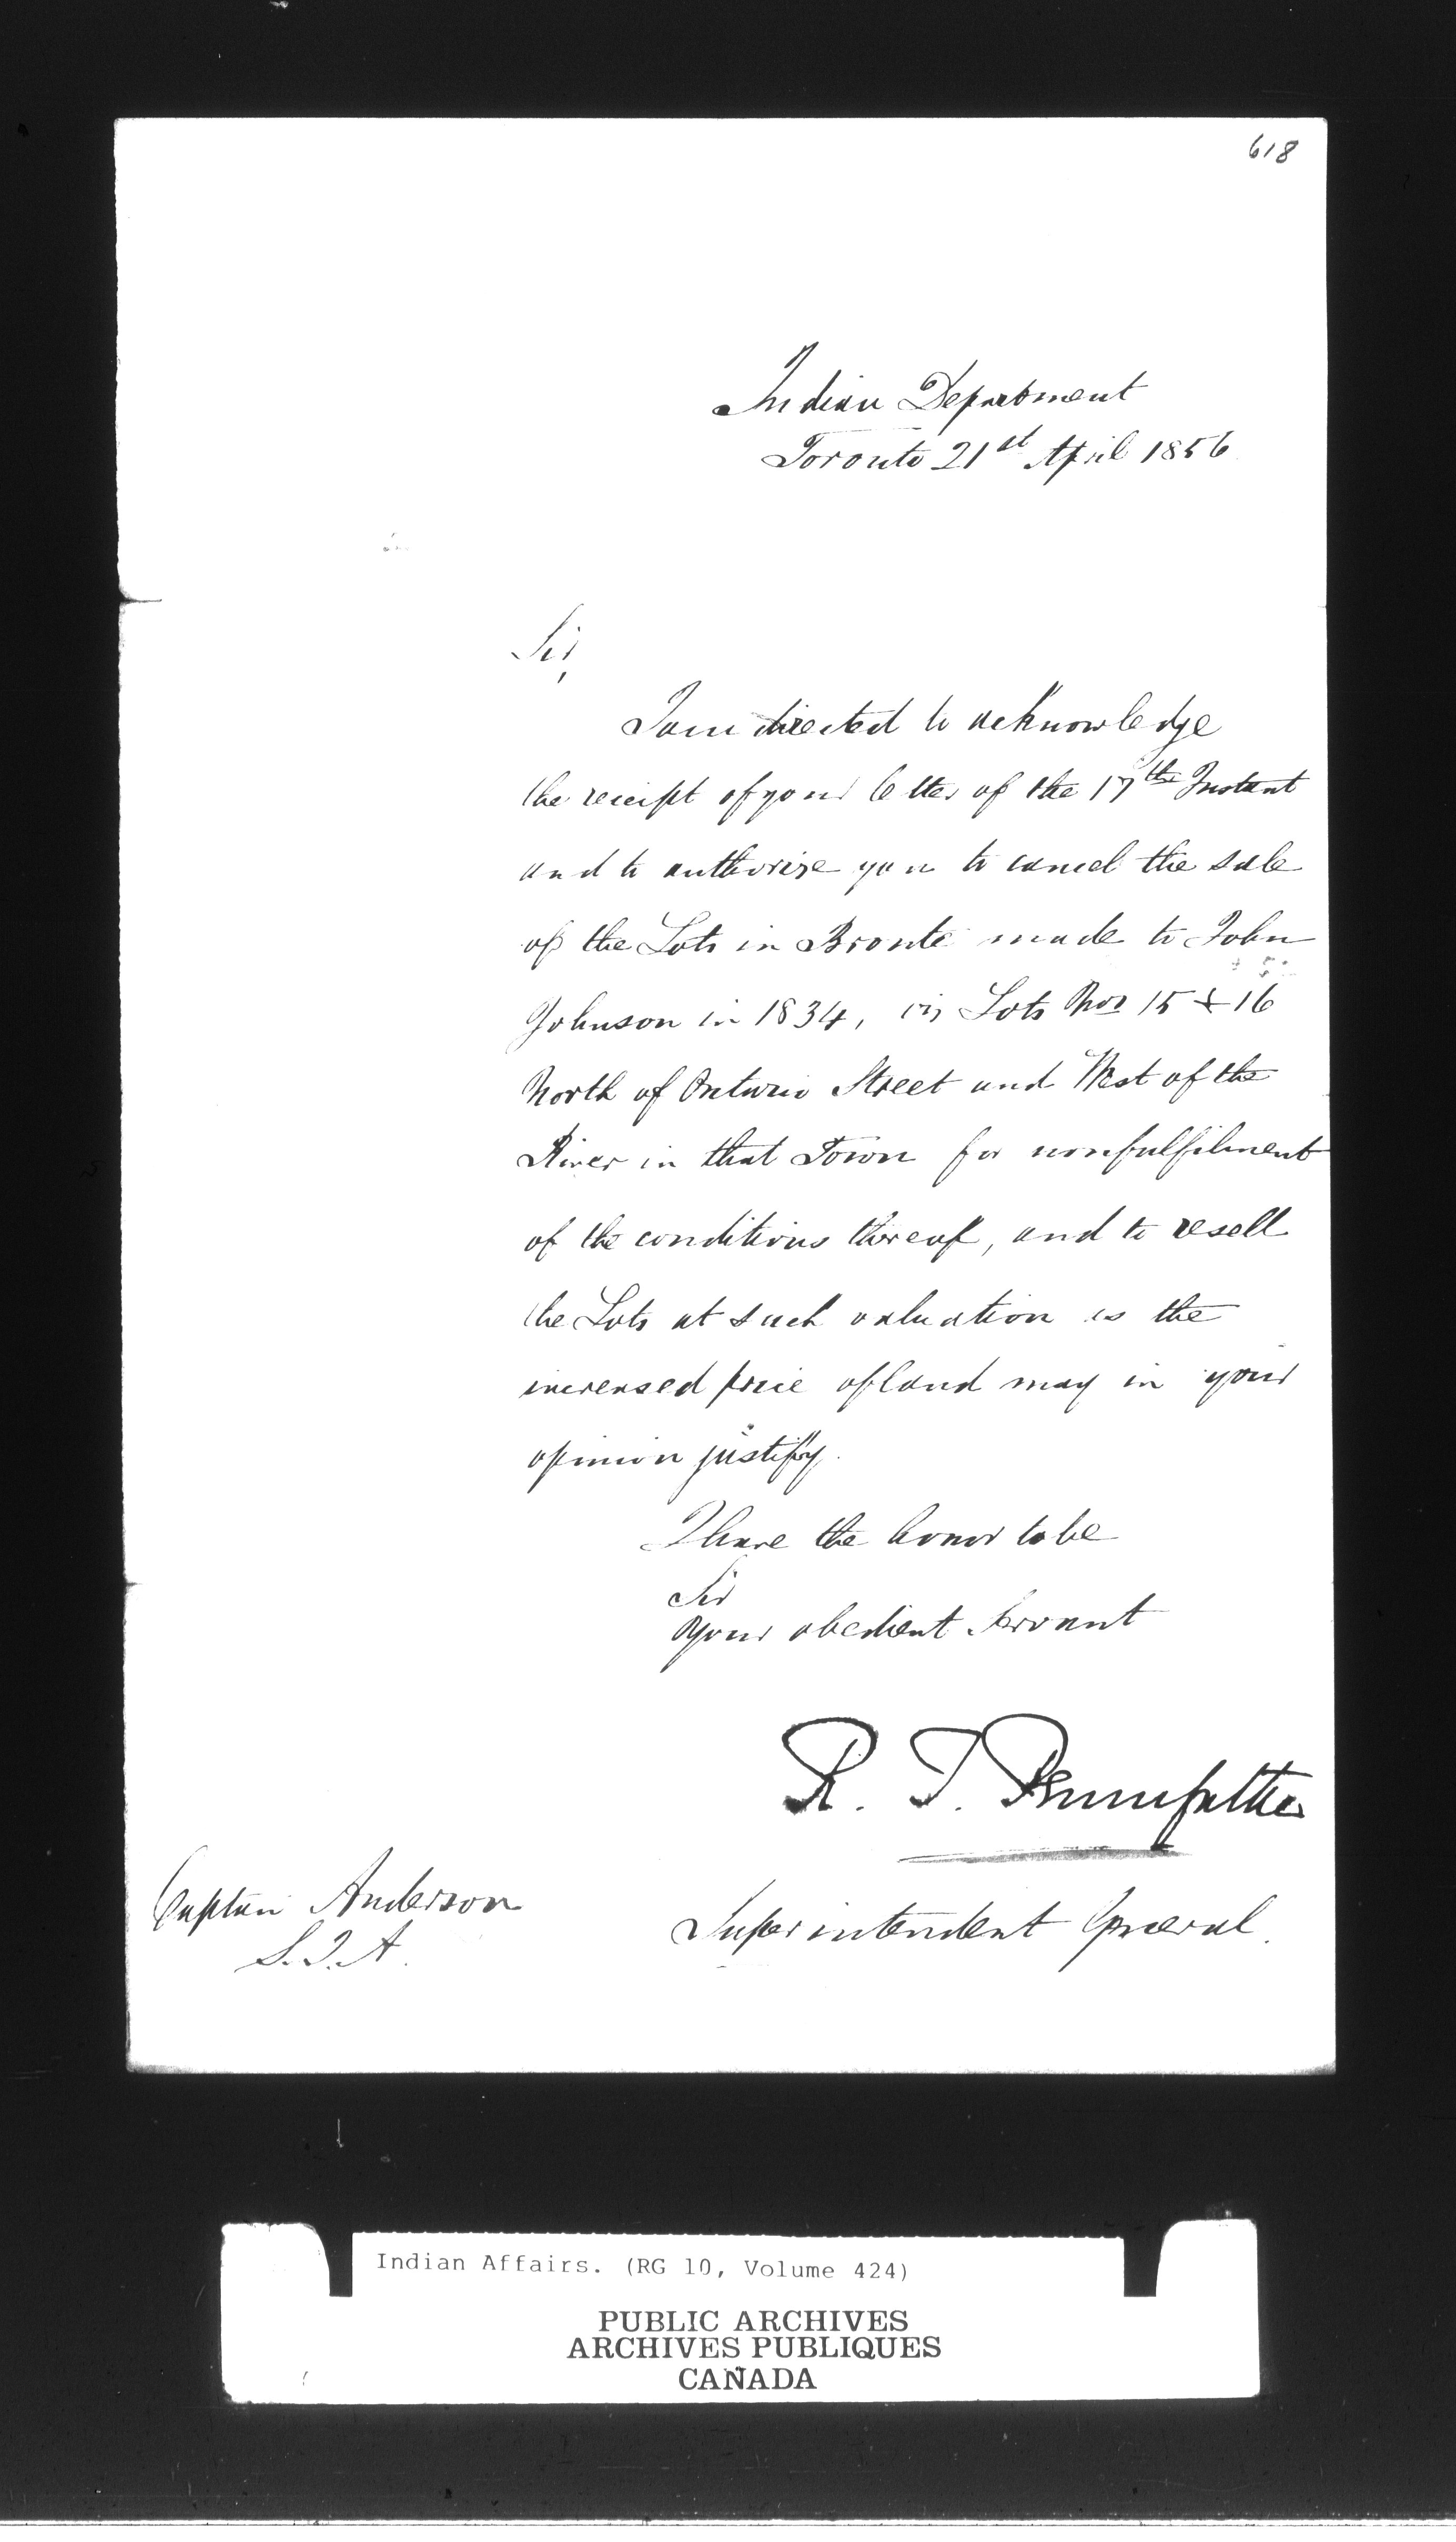 618
Indian Department
Toronto 21st April 1856
Sir,
I am directed to acknowledge
the receipt of your letter of the 17th Instant
and to authorize you to cancel the sale
of the Lots in Bronte made to John
Johnson in 1834, viz Lots Nos 15 & 16
North of Ontario Street and West of the
River in that Town for nonfulfilment
of the conditions thereof, and to resell
the Lots at such valuation as the
increased price of land may in your
opinion justify.
I have the honor to be
Sir
Your obedient Servant
R. T. Pennefather
Captain Anderson
S.I.A.
Superintendent General.
Indian Affairs. (RG 10, Volume 424)
PUBLIC ARCHIVES
ARCHIVES PUBLIQUES
CANADA